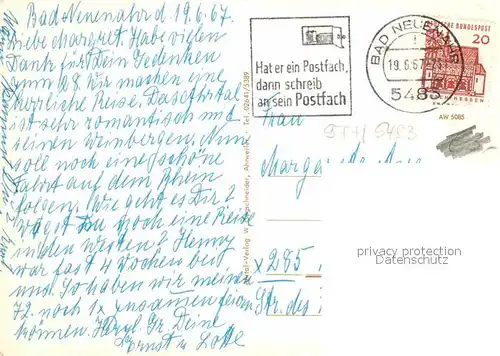 Bad Neuenahr d 19.6.67.
Liebe Margret. Habe vielen
Dank für Dein Gedenken
zum 28. Wir machen eine
herrliche Reise. Das Ahrtal
ist sehr romantisch mit
seinen Weinbergen. Nun
soll noch eine schöne
Fahrt auf dem Rhein
folgen. Wie geht es Dir?
Wagst Du noch eine Reise
in den Westen? Henny
war fast 4 Wochen bei
uns. So haben wir meinen
72. noch 1x zusammen feiern
können. Herzl. Gr. Deine
Ernst u. Lotte
Hat er ein Postfach,
dann schreib
an sein Postfach
BAD NEUENAHR
19.6.67
5483
DEUTSCHE BUNDESPOST
20
HESSEN
AW 5085
Frau
x 285
Str. des
privacy protection
Datenschutz